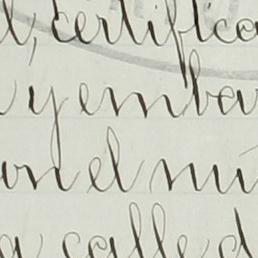 l, certifica
y embar
on el nú
a calle d